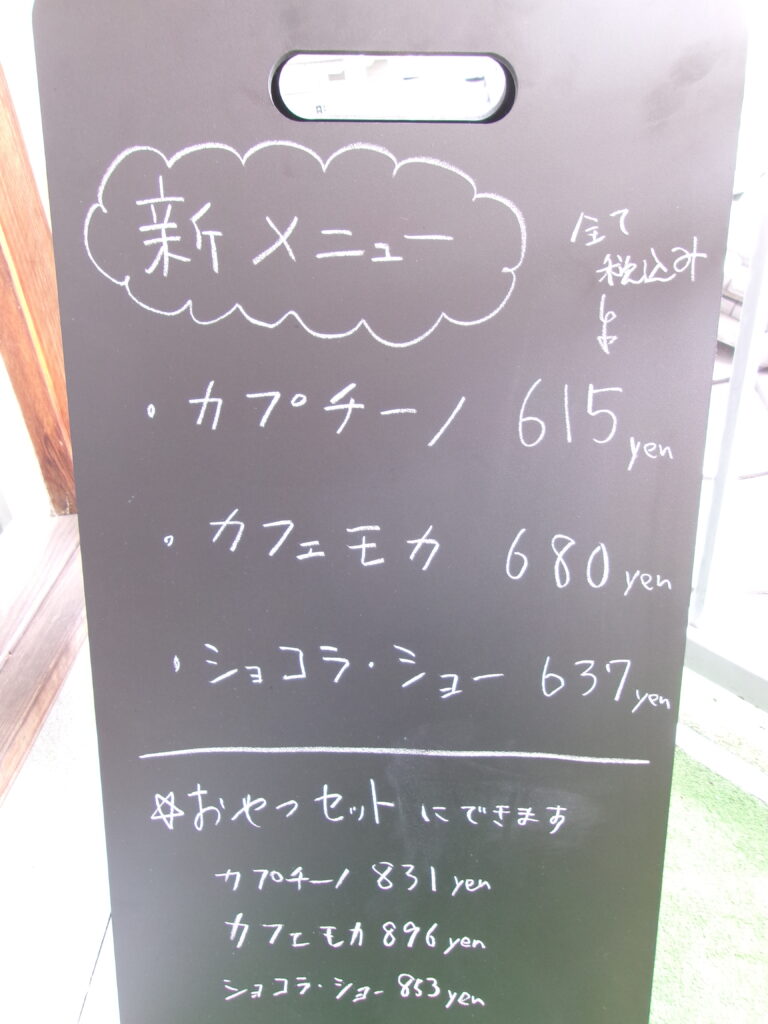 新メニュー
全て
税込み
・カプチーノ 615yen
・カフェモカ 680yen
・ショコラ・ショー 637yen
☆おやつセットにできます
カプチーノ 831yen
カフェモカ 896yen
ショコラ・ショー 853yen